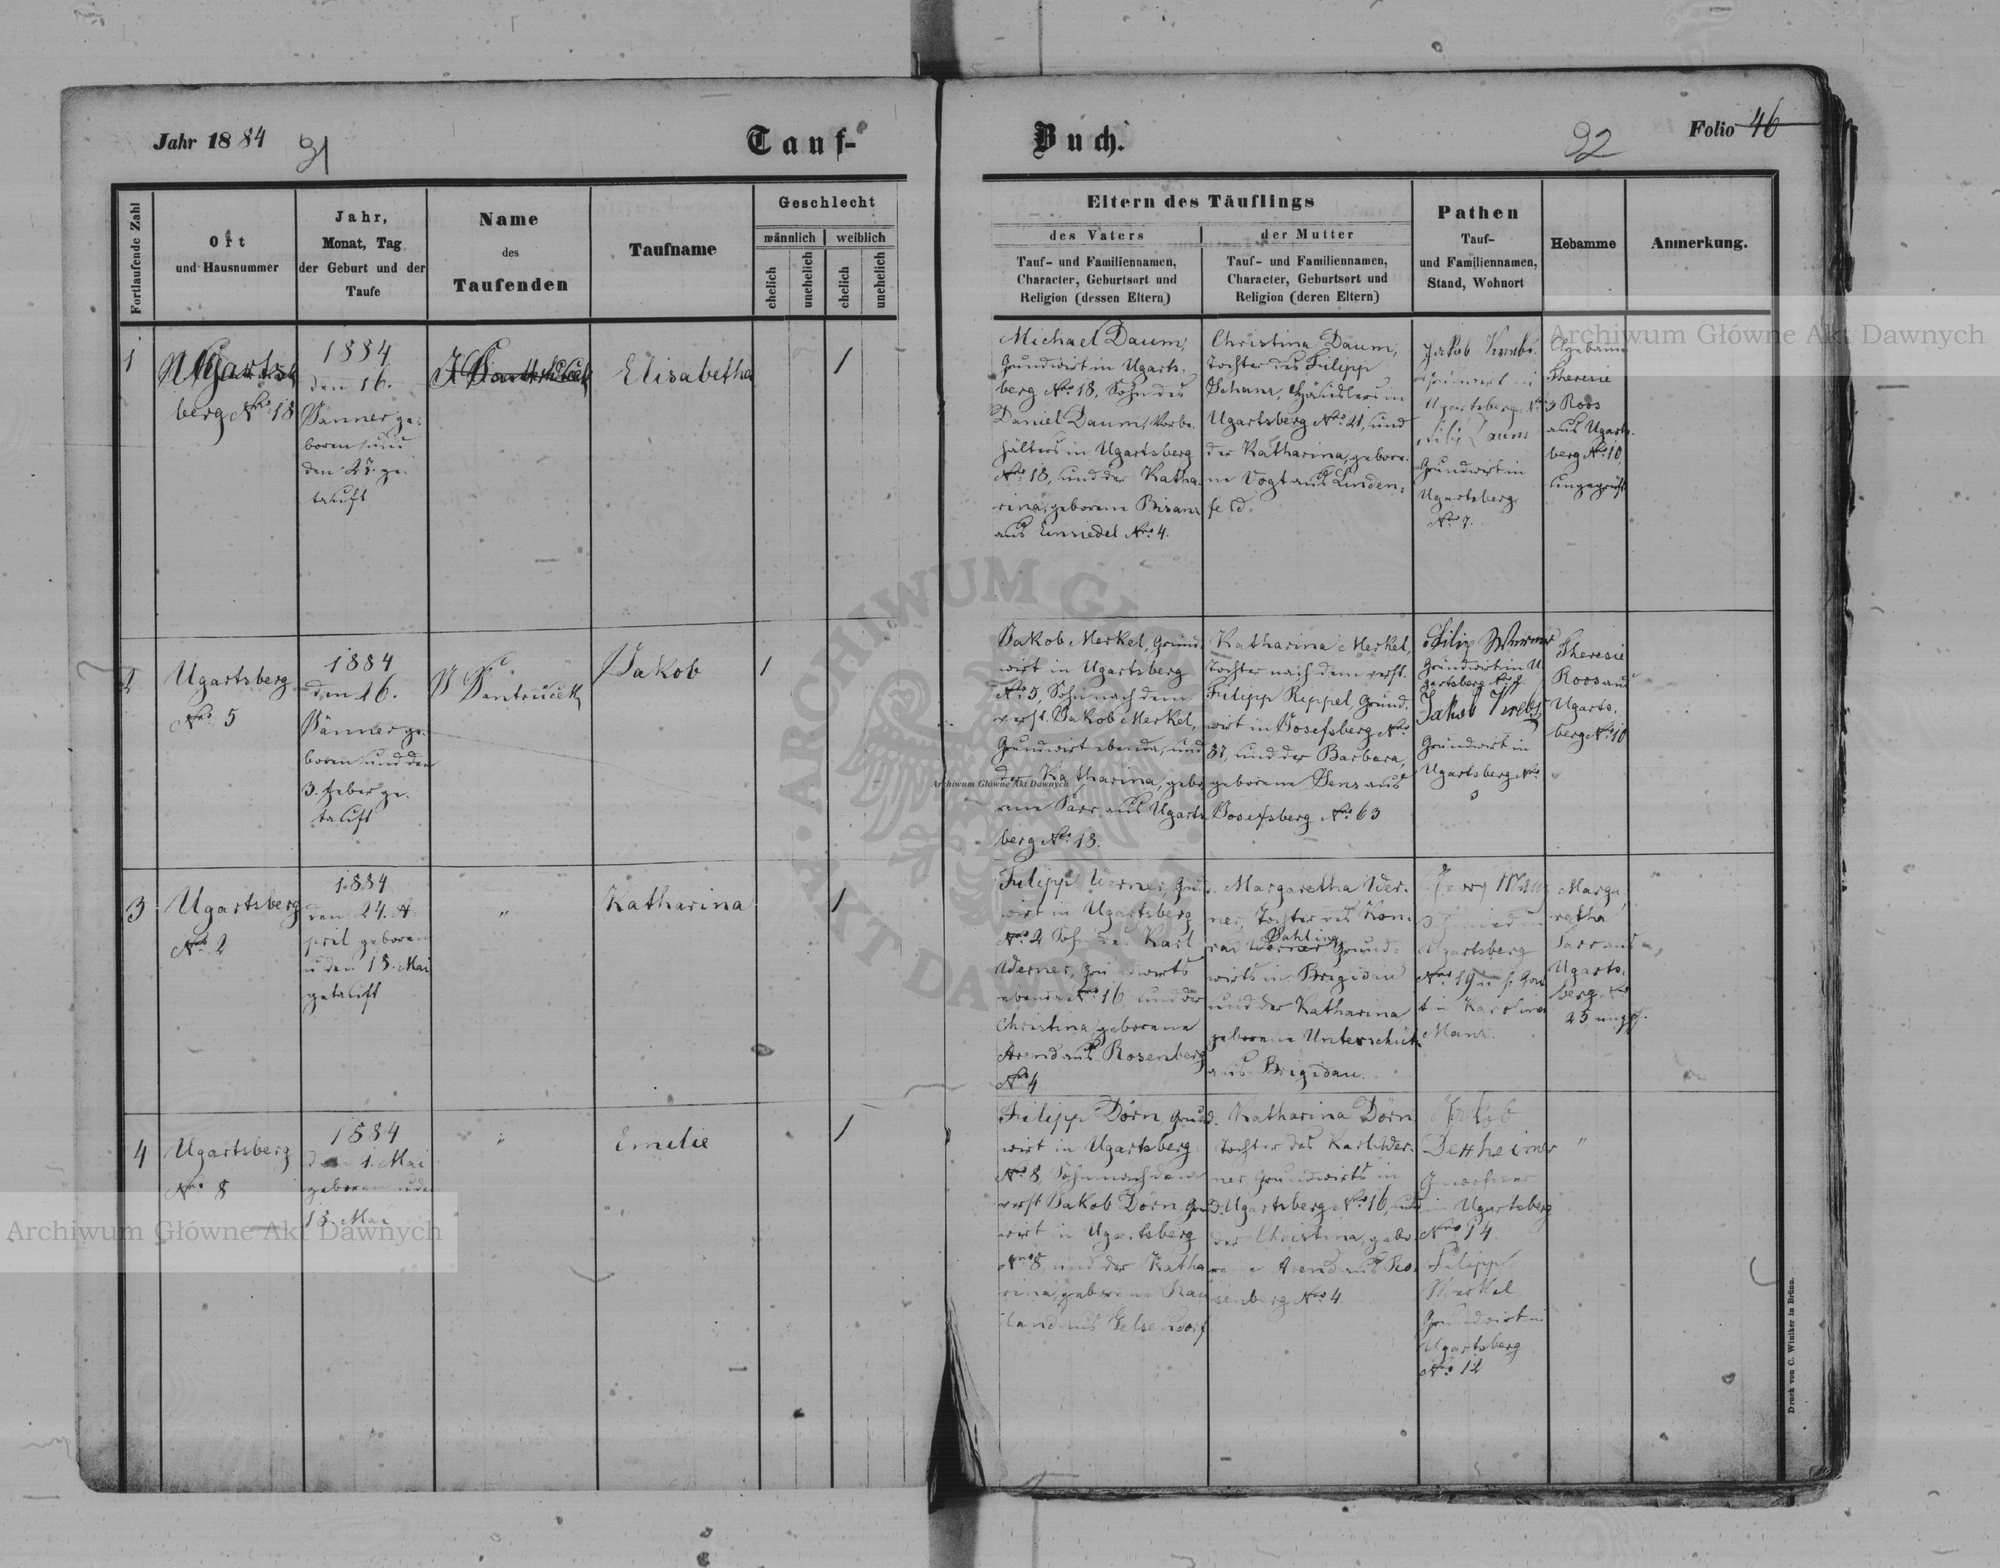 Jahr 1884
91
Tauf-
Buch.
92
Folio 46
Fortlaufende Zahl
Ort
und Hausnummer
Jahr,
Monat, Tag
der Geburt und der
Taufe
Name
des
Taufenden
Taufname
Geschlecht
männlich
weiblich
ehelich
unehelich
ehelich
unehelich
Eltern des Täuflings
des Vaters
Tauf- und Familiennamen,
Character, Geburtsort und
Religion (dessen Eltern)
der Mutter
Tauf- und Familiennamen,
Character, Geburtsort und
Religion (deren Eltern)
Pathen
Tauf-
und Familiennamen,
Stand, Wohnort
Hebamme
Anmerkung.
1
Ugarts
berg Nro 18
1884
den 16.
Jänner ge-
boren und
den 27. ge-
tauft
Elisabetha
1
Michael Daum,
Grundwirt in Ugarts-
berg Nro 18, Sohn des
Daniel Daum, Vorbe-
hälters in Ugartsberg
Nro 18, und der Katha-
rina, geborene Bisanz
aus Einsiedel Nro 4.
Christina Daum,
Tochter des Filipp
Schanz, Häuslers in
Ugartsberg Nro 21, und
der Katharina, gebore-
ne Vogt aus Linden-
feld.
Jakob
Ugartsberg
Daum
Grundwirt in
Ugartsberg
Nro 7.
Hebamme
Theresie
Roos
aus Ugarts-
berg Nro 10,
ungeprüft
2
Ugartsberg
Nro 5
1884
den 26.
Jänner ge-
boren und den
3. Feber ge-
tauft
J Jantucek
Jakob
1
Jakob Merkel, Grund-
wirt in Ugartsberg
Nro 5, Sohn nach dem
verst. Jakob Merkel,
Grundwirt ebenda, und
der Katharina, gebo-
rene Parr aus Ugarts-
berg Nro 18.
Katharina Merkel,
Tochter nach dem verst.
Filipp Rippel, Grund-
wirt in Josefsberg Nro
37, und der Barbara,
geborene Senz aus
Josefsberg Nro 63
Filip Werner
Grundwirt in U-
gartsberg Nro 2
Jakob Krebs
Grundwirt in
Ugartsberg Nro
3
Theresie
Roos aus
Ugarts-
berg Nro 10
3
Ugartsberg
Nro 2
1884
den 24. A-
pril geboren
u den 18. Mai
getauft
"
Katharina
1
Filipp Werner, Grund-
wirt in Ugartsberg
Nro 2, Sohn des Karl
Werner, Grundwirts
ebenda Nro 16, und der
Christina, geborene
Arend aus Rosenberg
Nro 4
Margaretha Wer-
ner, Tochter des Kon-
rad Werner Grund-
wirts in Brigidau
und der Katharina
geborene Unterschütz
aus Brigidau.
Georg
Ugartsberg
Nro 19 u s. Gat-
tin Karolina
Manz.
Marga-
retha
Parr aus
Ugarts-
berg Nro
25 ungpr.
4
Ugartsberg
Nro 8
1884
den 1. Mai
geboren u den
18 Mai
"
Emelie
1
Filipp Dörn, Grund-
wirt in Ugartsberg
Nro 8, Sohn nach dem
verst Jakob Dörn, Grund-
wirt in Ugartsberg
Nro 8, und der Katha-
rina, geborene Rau-
land aus Gelsendorf
Katharina Dörn,
Tochter des Karl Wer-
ner, Grundwirts in
Ugartsberg Nro 16, und
der Christina, gebo-
rene Arend aus Ro-
senberg Nro 4.
Jakob
Dexheimer
in Ugartsberg
Nro 14.
Filipp
Merkel
Grundwirt in
Ugartsberg
Nro 12
"
Druck von C. Winiker in Brünn.
Archiwum Główne Akt Dawnych
Archiwum Główne Akt Dawnych
Archiwum Główne Akt Dawnych